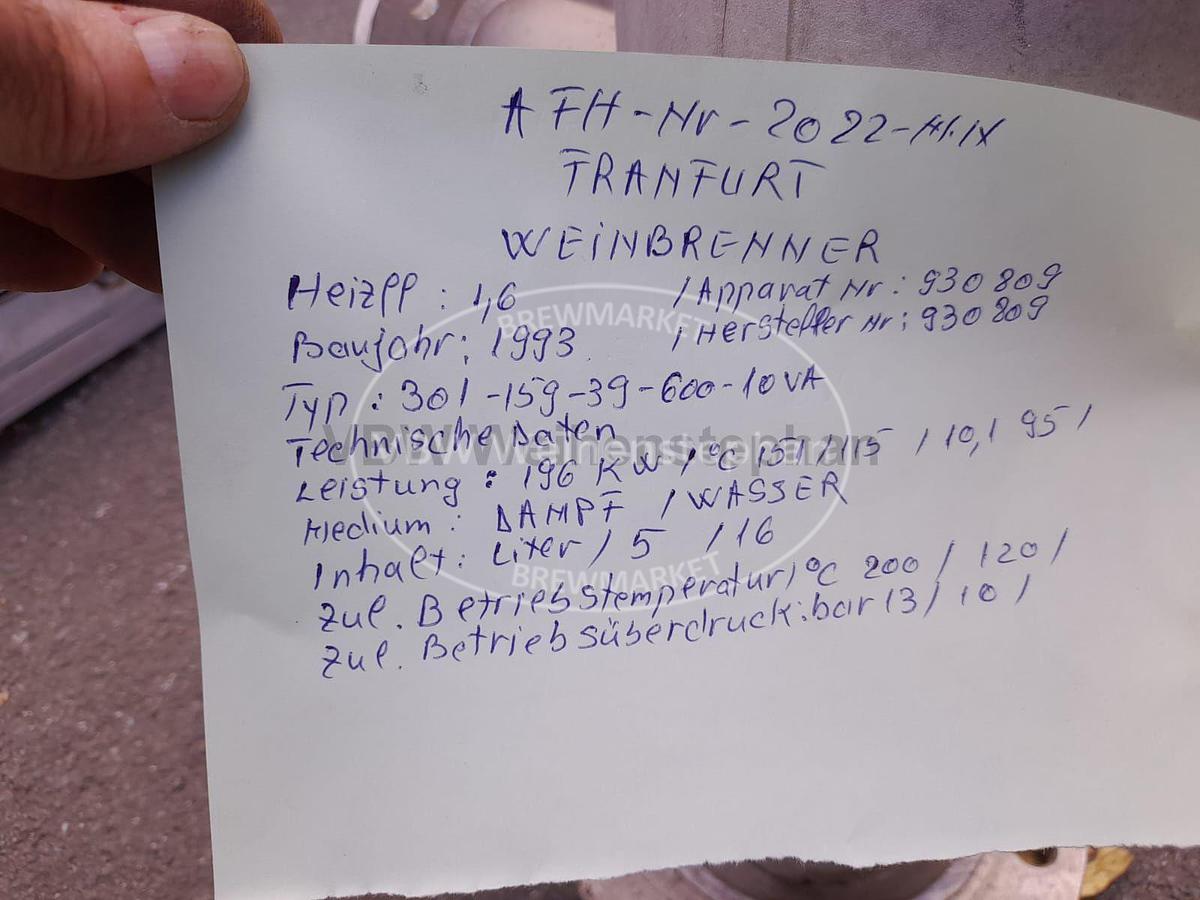 AFH-Nr-2022-
TRANFURT
WEINBRENNER
Heizfl: 1,6 / Apparat Nr: 930809
Baujohr: 1993 / Hersteller Nr: 930809
Typ: 301-159-39-600-10 VA
Technische Daten
Leistung: 196 KW / °C 151 / 115 / 10,1 95 /
Medium: DAMPF / WASSER
Inhalt: Liter / 5 / 16
Zul. Betriebstemperatur / °C 200 / 120 /
Zul. Betriebsüberdruck: bar 13 / 10 /
BREWMARKET
VLBW Weihenstephan
BREWMARKET